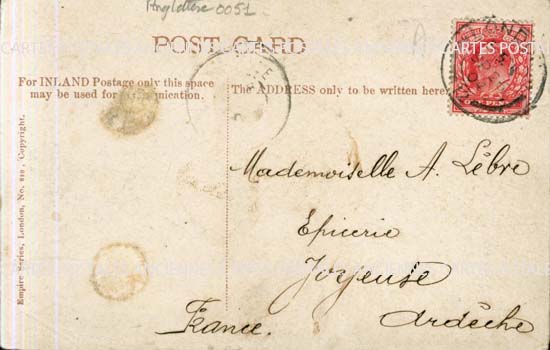 Angleterre 0051
POST CARD
For INLAND Postage only this space
may be used for Communication.
The ADDRESS only to be written here.
Mademoiselle A. Lèbre
Epicerie
Joyeuse
Ardèche
France.
Empire Series, London, No. 818. Copyright.
CARTES POSTA